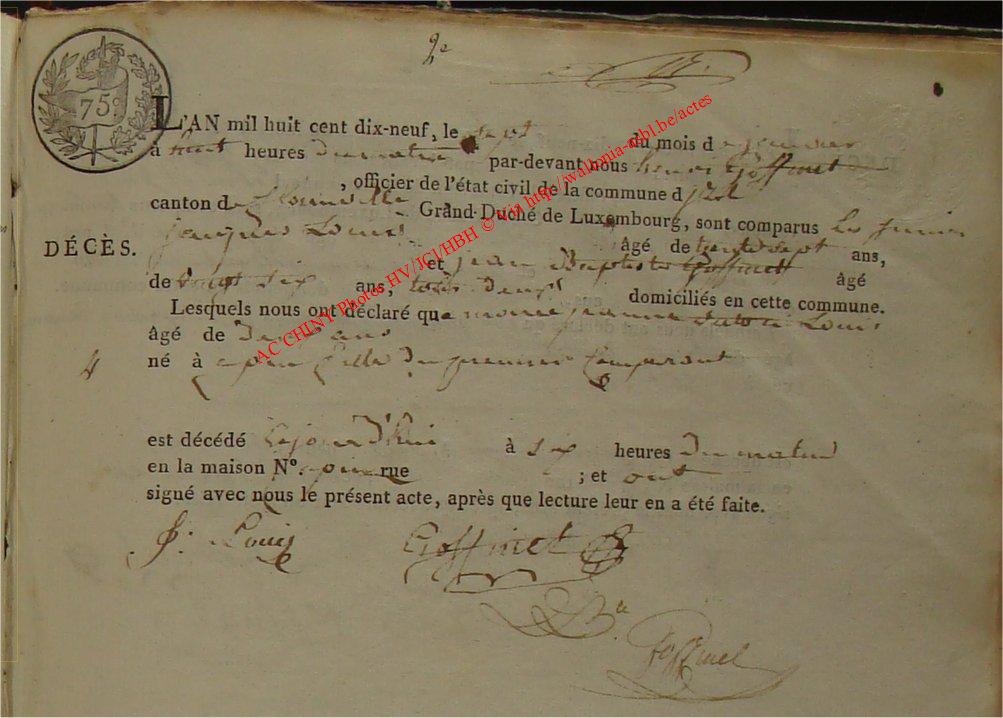 2e
75c
L'AN mil huit cent dix-neuf, le sept du mois de janvier
à huit heures du matin par-devant nous henri Goffinet
, officier de l'état civil de la commune d
canton de florenville Grand-Duché de Luxembourg, sont comparus
DÉCÈS.
jacques Louis âgé de trente sept ans,
et jean Baptiste Goffinet âgé
de vingt six ans, tous deux domiciliés en cette commune.
Lesquels nous ont déclaré que marie jeanne Louis
âgé de ans
né à fille du premier Comparant
est décédé cejourd'hui à six heures du matin
en la maison N°. rue ; et ont
signé avec nous le présent acte, après que lecture leur en a été faite.
J: Louis Goffinet
Goffinet
AC CHINY Photos HV/JCI/HBH © Via http://wallonia-asbl.be/actes